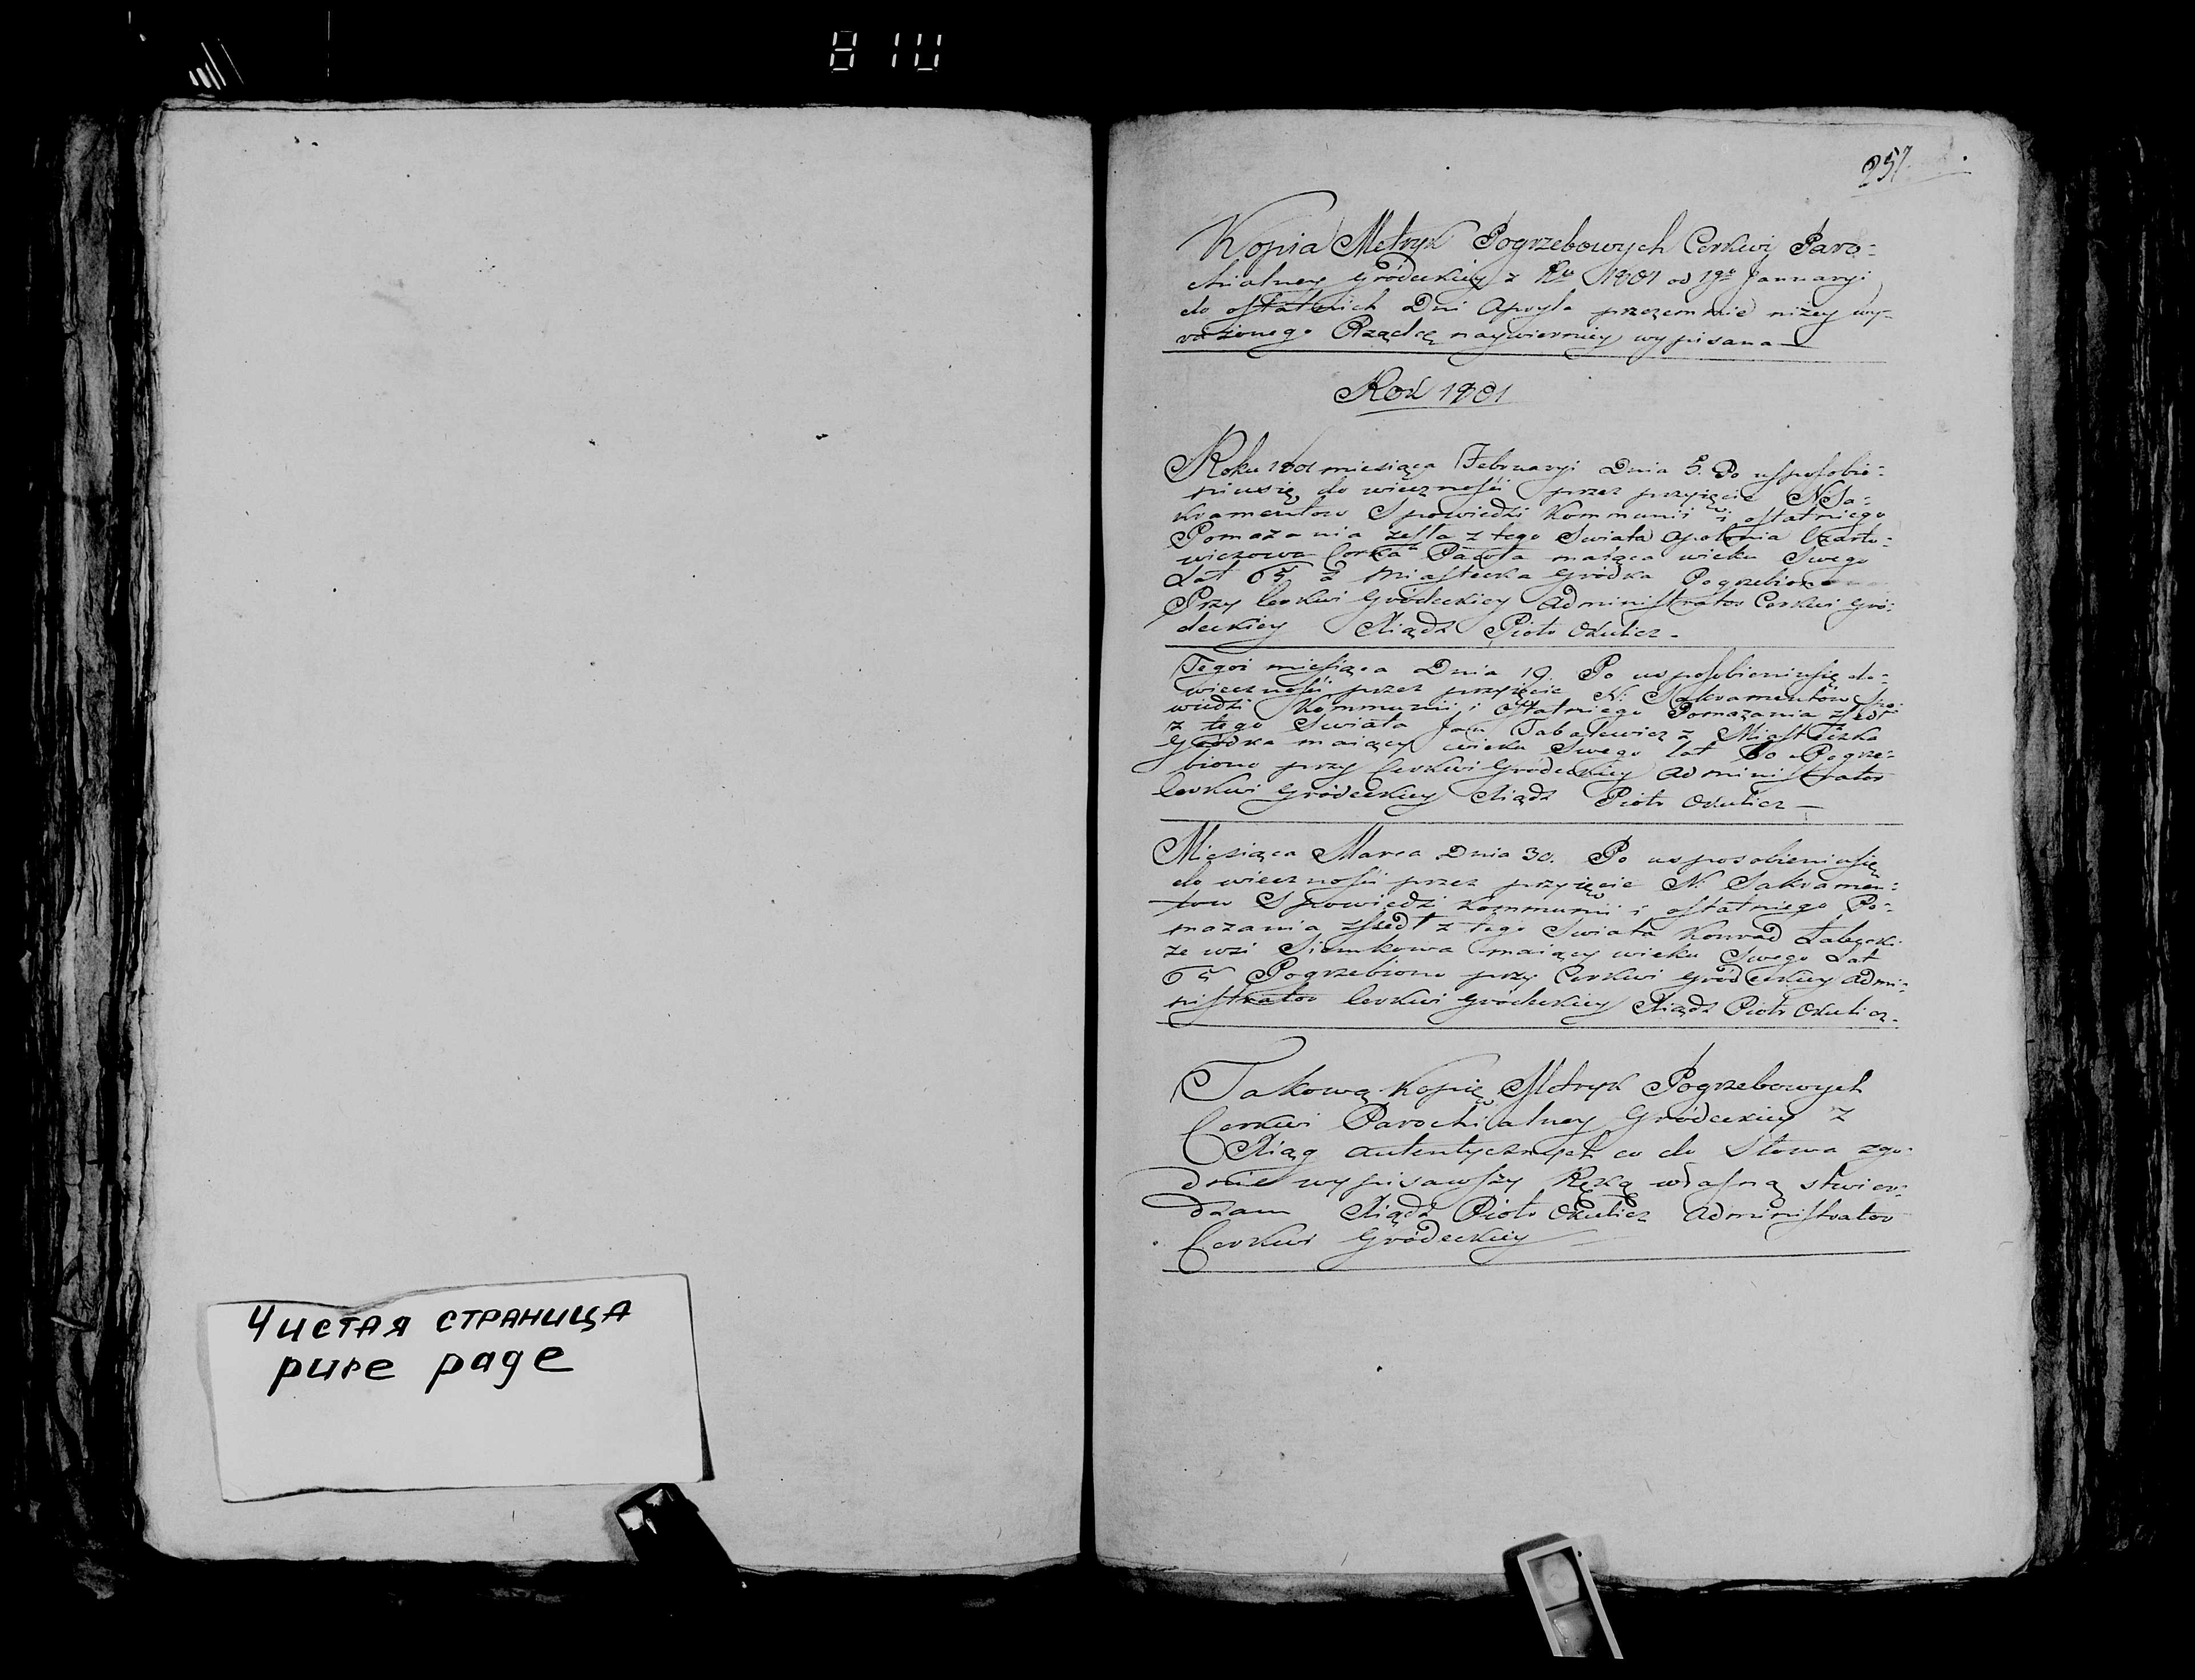 810
Чистая страница
pure page
257.
Kopia Metryk Pogrzebowych Cerkwi Paro-
chialney Gródeckiey z Ru 1801 od 19o Januaryi
do ostatnich Dni Apryla przezemnie niżey wy-
rażonego Rządcę naywierniey wypisana
Rok 1801
Roku 1801 miesiąca Februaryi Dnia 5. Po usposobie-
niusię do wiecznośći przez przyięcie N. Sa-
kramentow Spowiedzi Kommunii i ostatniego
Pomazania zeszła z tego Swiata Apolonia
wiczowa Corka maiąca wieku Swego
Lat 65 z Miasteczka Gródka Pogrzebiona
Przy Cerkwi Gródeckiey Administrator Cerkwi Gró-
deckiey Xiądz Piotr Okulicz -
Tegoż miesiąca Dnia 19. Po usposobieniusię do-
wiecznośći przez przyięcie N. Sakramentów Spo-
wiedzi Kommunii i Ostatniego Pomazania zszedł
z tego Swiata Jan Tabalewicz z Miasteczka
Gródka maiący wieku Swego lat Pogrze-
biono przy Cerkwi Gródeckiey Administrator
Cerkwi Gródeckiey Xiądz Piotr Okulicz -
Miesiąca Marca Dnia 30. Po usposobieniusię
do wiecznośći przez przyięcie N. Sakramen-
tow Spowiedzi Kommunii i ostatniego Po-
mazania zszedł z tego Swiata Konrad
ze wsi Siemkowa maiący wieku Swego Lat
65 Pogrzebiono przy Cerkwi Gródeckiey Admi-
nistrator Cerkwi Gródeckiey Xiądz Piotr Okulicz -
Takową Kopię Metryk Pogrzebowych
Cerkwi Parochialney Gródeckiey z
Xiąg autentycznych co do Słowa zgo-
dnie wypisawszy Ręką własną stwier-
dzam Xiądz Piotr Okulicz Administrator
Cerkwi Gródeckiey